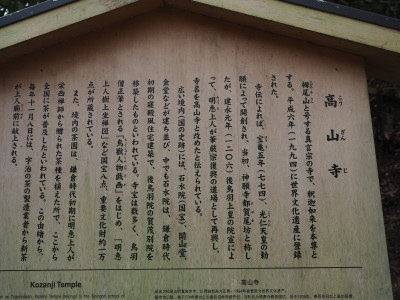 高山寺
こうざんじ
栂尾山と号する真言宗の寺で、釈迦如来を本尊と
する。平成六年（一九九四）に世界文化遺産に登録
された。
寺伝によれば、宝亀五年（七七四）、光仁天皇の勅
願によって開創され、当初、神願寺都賀尾坊と称し
たが、建永元年（一二〇六）後鳥羽上皇の院宣によ
って、明恵上人が華厳宗復興の道場として再興し、
寺名を高山寺と改めたと伝えられている。
広い境内（国の史跡）には、石水院（国宝）、開山堂、
金堂などが建ち並び、中でも石水院は、鎌倉時代
初期の寝殿風住宅建築で、後鳥羽院の賀茂別院を
移築したものといわれている。寺宝は数多く、鳥羽
僧正筆とされる「鳥獣人物戯画」をはじめ、「明恵
上人樹上坐禅図」など国宝八点、重要文化財約一万
点が所蔵されている。
また、境内の茶園は、鎌倉時代初期に明恵上人が
栄西禅師から贈られた茶種を植えた所で、ここから
全国に茶が普及したといわれている。この由緒から、
毎年十一月八日には、宇治の茶の製造業者から新茶
が上人廟前に献上される。
Kozanji Temple
高山寺